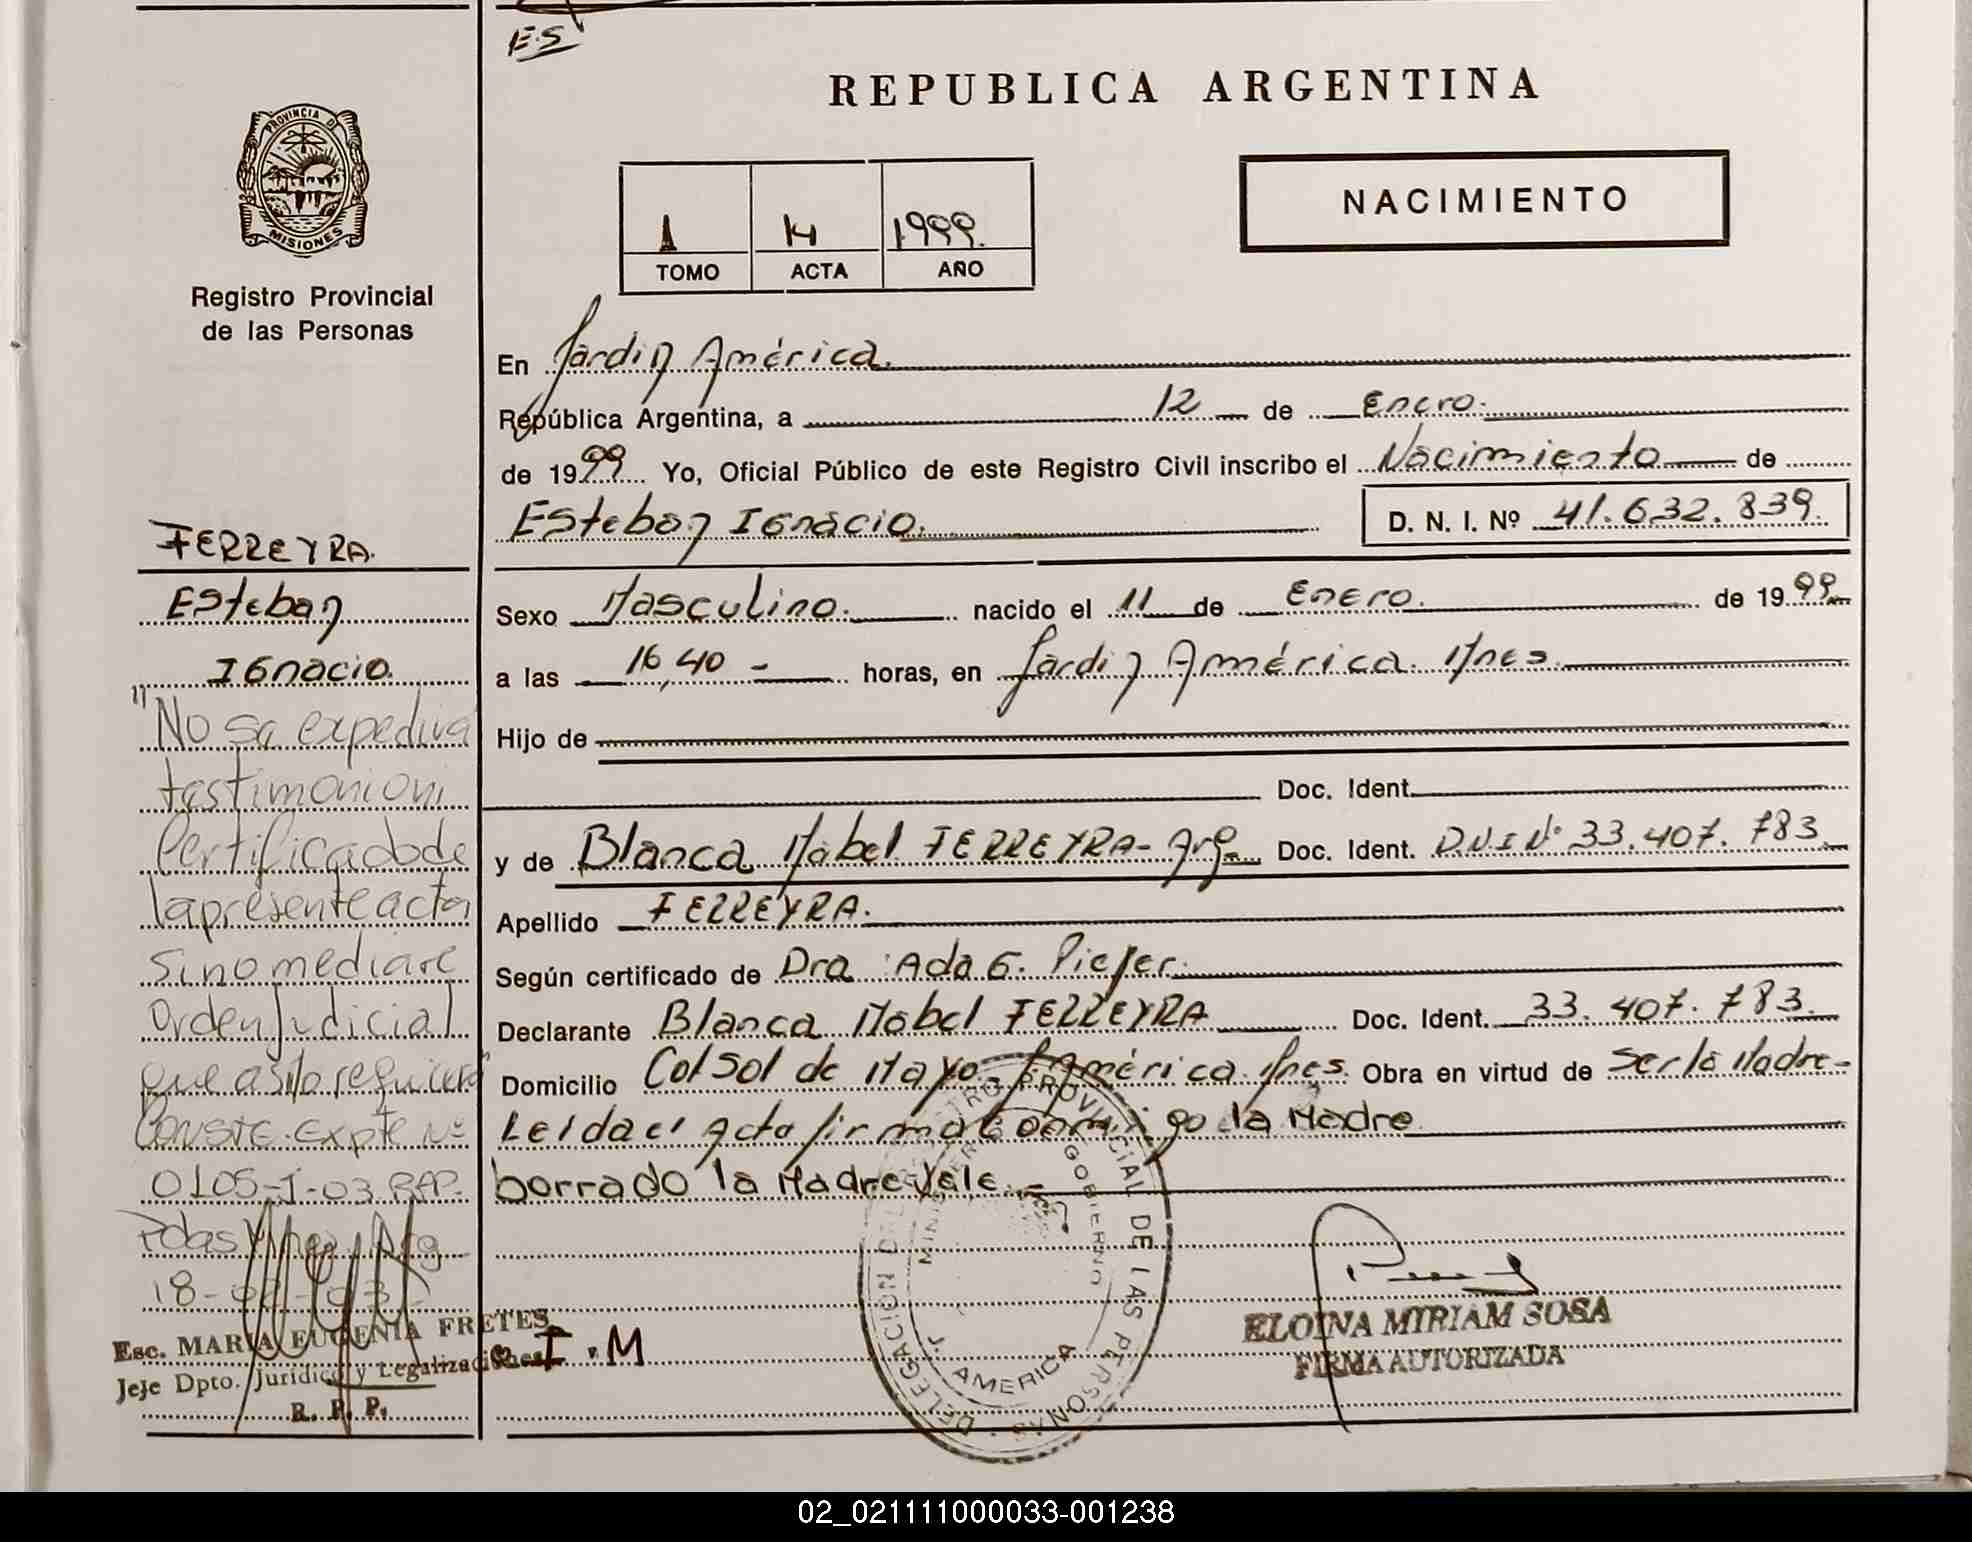 ES
REPUBLICA ARGENTINA
PROVINCIA DE
MISIONES
NACIMIENTO
1 14 1999.
TOMO ACTA AÑO
Registro Provincial
de las Personas
En Jardin América.
República Argentina, a 12 de Enero.
de 1999 Yo, Oficial Público de este Registro Civil inscribo el Nacimiento de
Esteban Ignacio. D. N. I. Nº 41.632.839.
Sexo Masculino. nacido el 11 de Enero. de 1999
a las 16,40 - horas, en Jardin América. Mnes.
Hijo de
Doc. Ident.
y de Blanca Mabel FERREYRA - Arg. Doc. Ident. D.N.I Nº 33.407.783
Apellido FERREYRA.
Según certificado de Dra Ada G. Piefer.
Declarante Blanca Mabel FERREYRA Doc. Ident. 33.407.783.
Domicilio Col Sol de Mayo J. América. Mnes. Obra en virtud de Ser la Madre-
Leida el Acta firma conmigo la Madre
borrado la Madre Vale.-
FERREYRA.
Esteban
Ignacio.
"No se expedira
testimonio ni
Certificado de
la presente acta
sino mediare
Orden Judicial
que asi lo requiera"
Conste. Expte Nº
0105-I-03 RPP.
Pdas Mnes, Arg
18-02-03
Esc. MARIA EUGENIA FRETES
Jefe Dpto. Jurídico y Legalizaciones
R. P. P.
I. M
DELEGACION DEL REGISTRO PROVINCIAL DE LAS PERSONAS
GOBIERNO
J. AMERICA
ELOINA MIRIAM SOSA
FIRMA AUTORIZADA
02_021111000033-001238